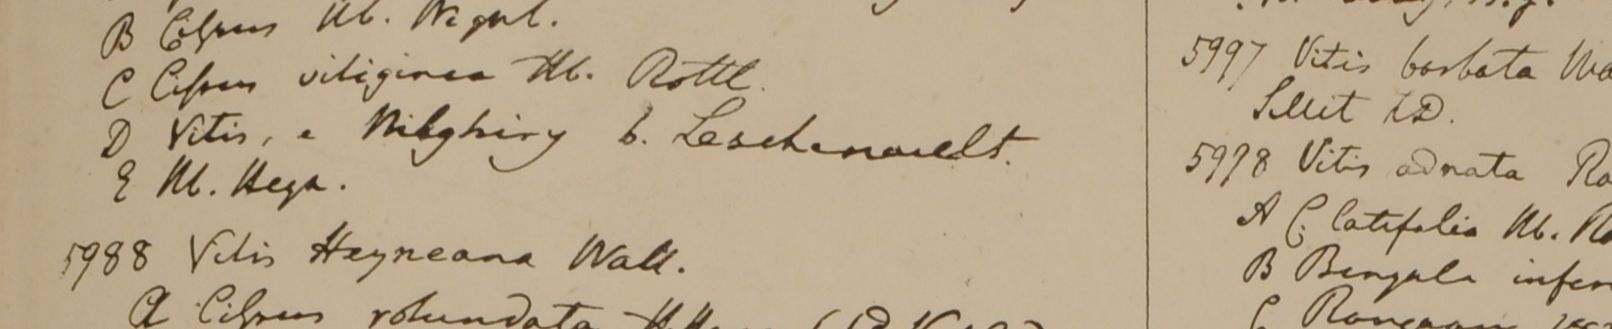 B Cifsus Hb. Wight.
C Cifsus vitiginea Hb. Rottl.
D Vitis, e Nilghiry b. Leschenauelt.
E Hb. Heyn.
5988 Vitis Heyneana Wall.
A Cifsus rotundata
5997 Vitis barbata Wa
Sillit ID.
5998 Vitis adnata Ro
A C. latifolia Hb. Ro
B Bengala infer
C